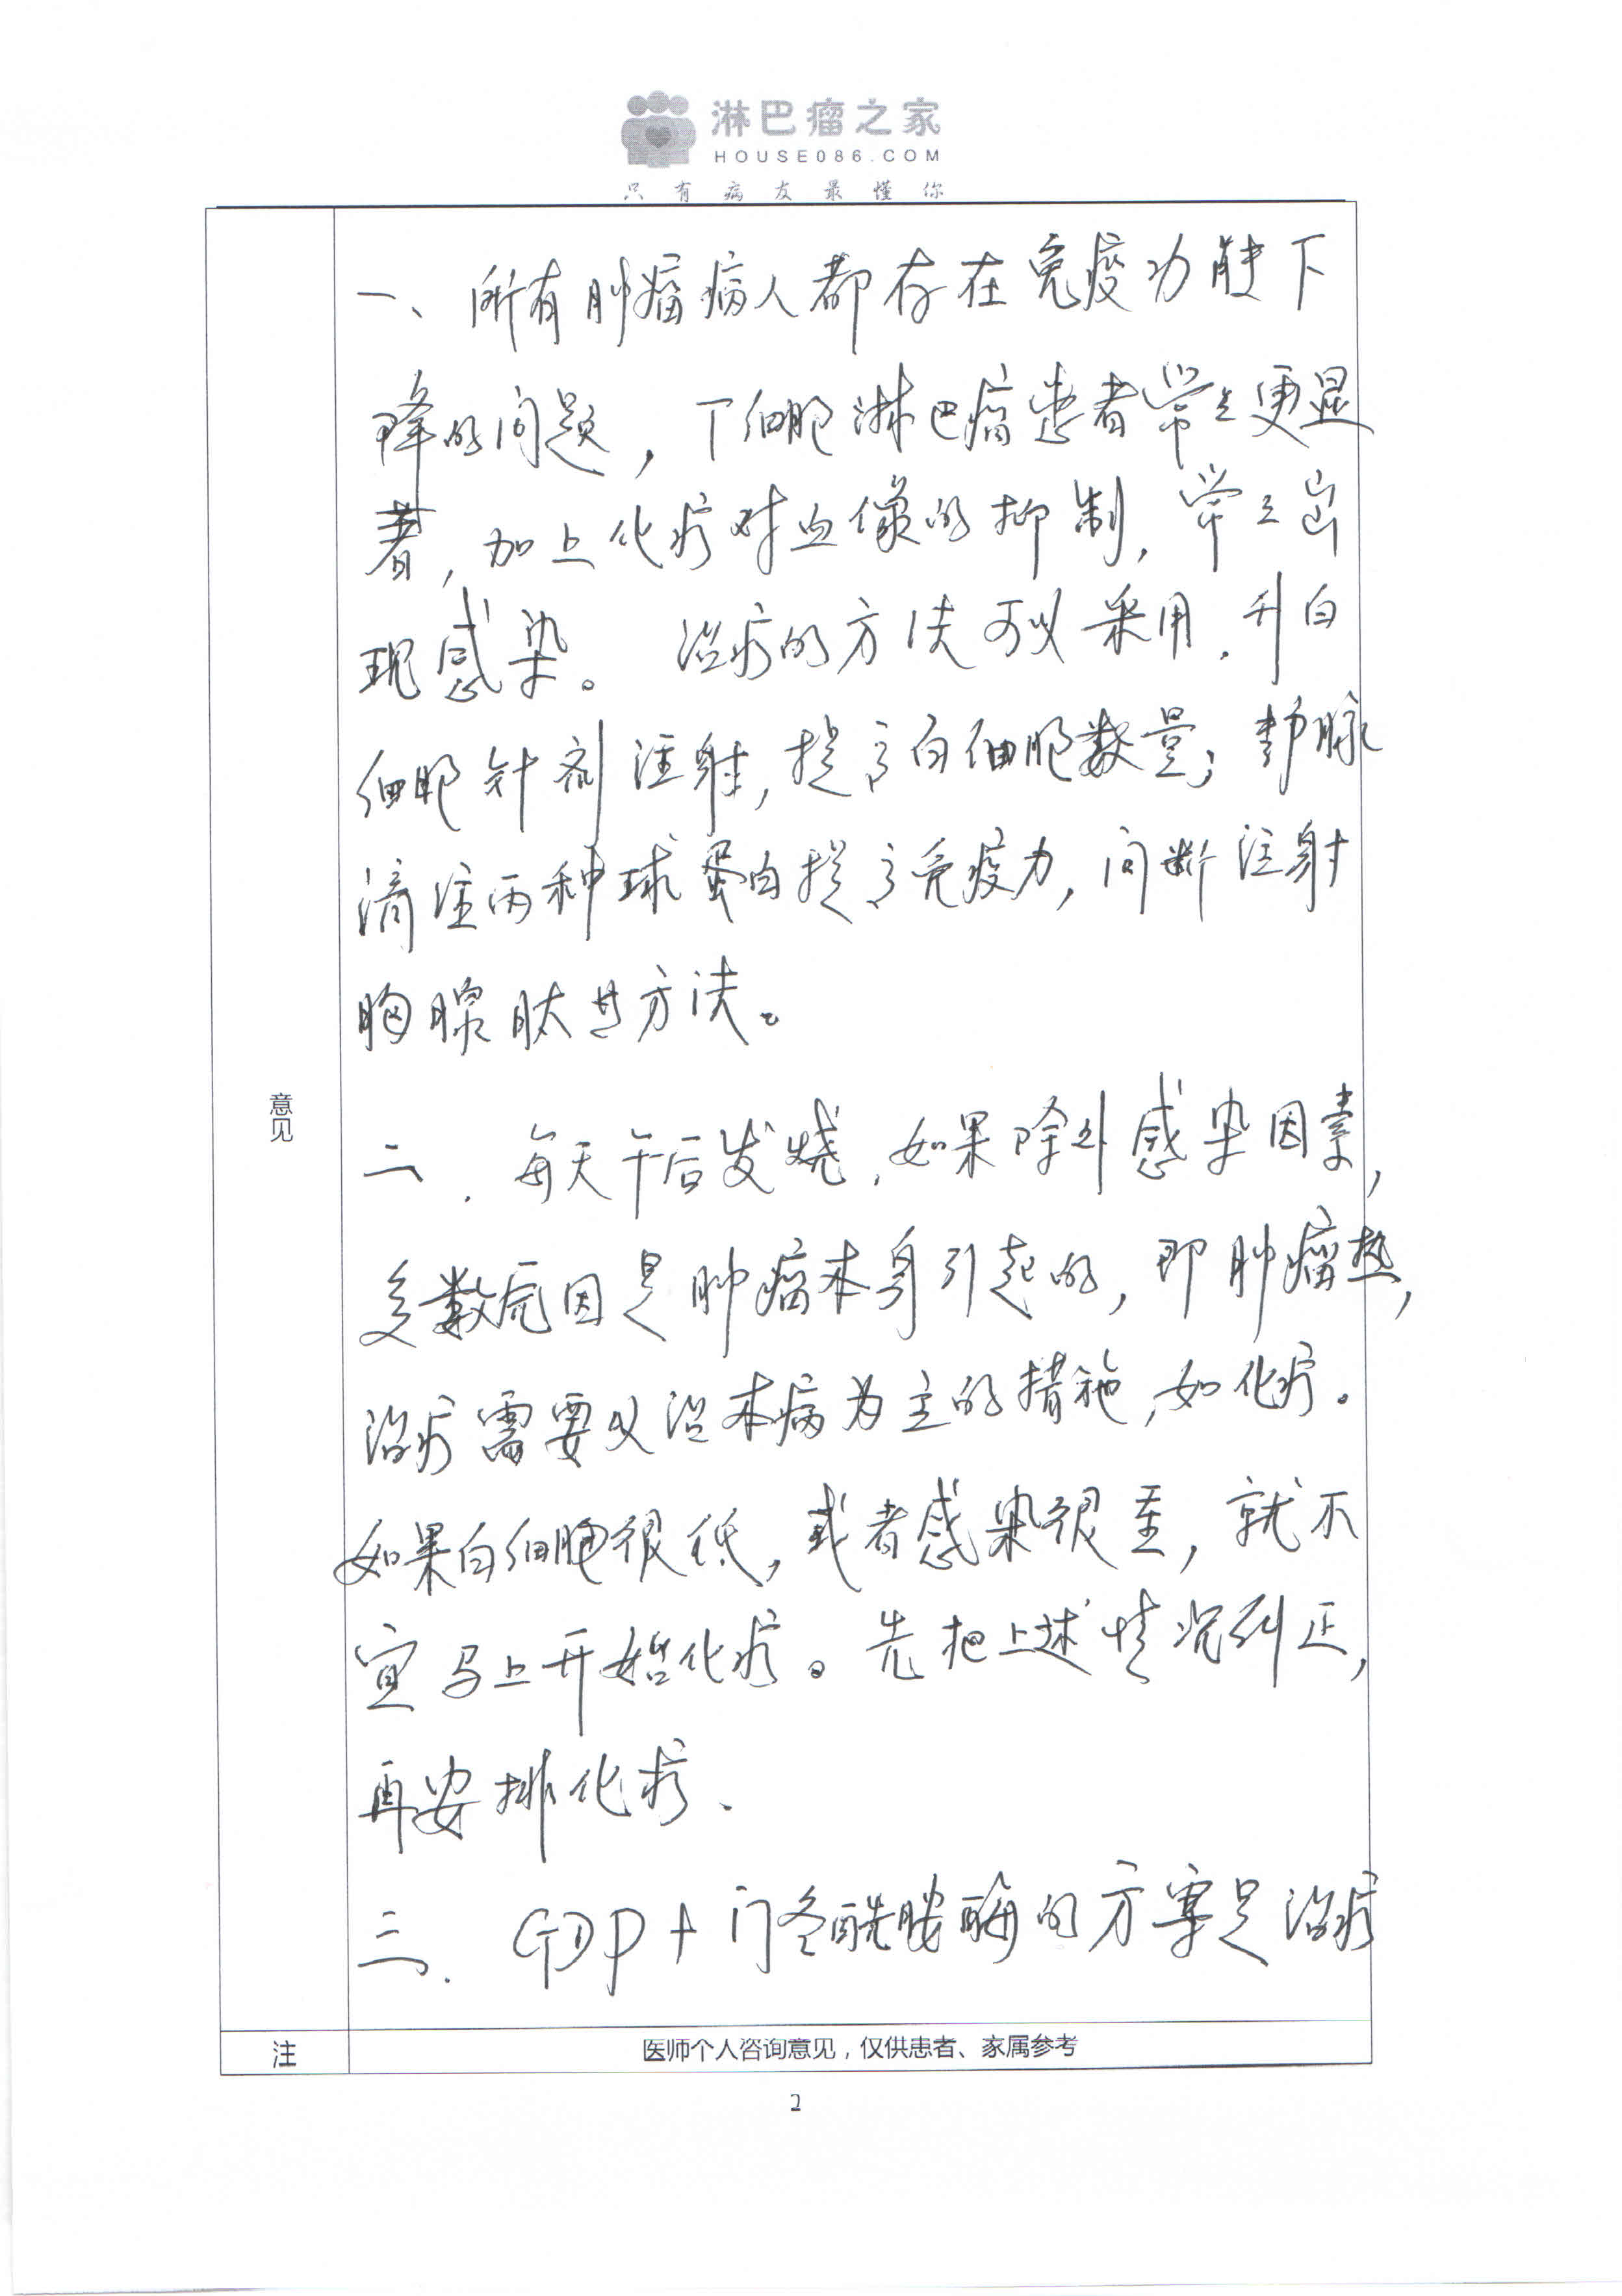 淋巴瘤之家
HOUSE086.COM
只有病友最懂你
一、所有肿瘤病人都存在免疫功能下
降的问题，T细胞淋巴瘤患者常常更显
著，加上化疗对血像的抑制，常常出
现感染。治疗的方法可以采用．升白
细胞针剂注射，提高白细胞数量；静脉
滴注丙种球蛋白提高免疫力，间断注射
胸腺肽等方法。
意见
二．每天午后发烧，如果除外感染因素，
多数原因是肿瘤本身引起的，即肿瘤热，
治疗需要以治本病为主的措施，如化疗。
如果白细胞很低，或者感染很重，就不
宜马上开始化疗。先把上述情况纠正，
再安排化疗、
三．GDP+门冬酰胺酶的方案是治疗
注
医师个人咨询意见，仅供患者、家属参考
2